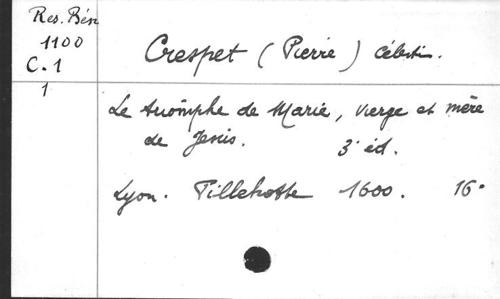 Res. Bén
1100
C. 1
1
Crespet (Pierre) célestin.
Le triomphe de Marie, vierge et mère
de Jésus. 3e éd.
Lyon. Pillehotte 1600. 16°